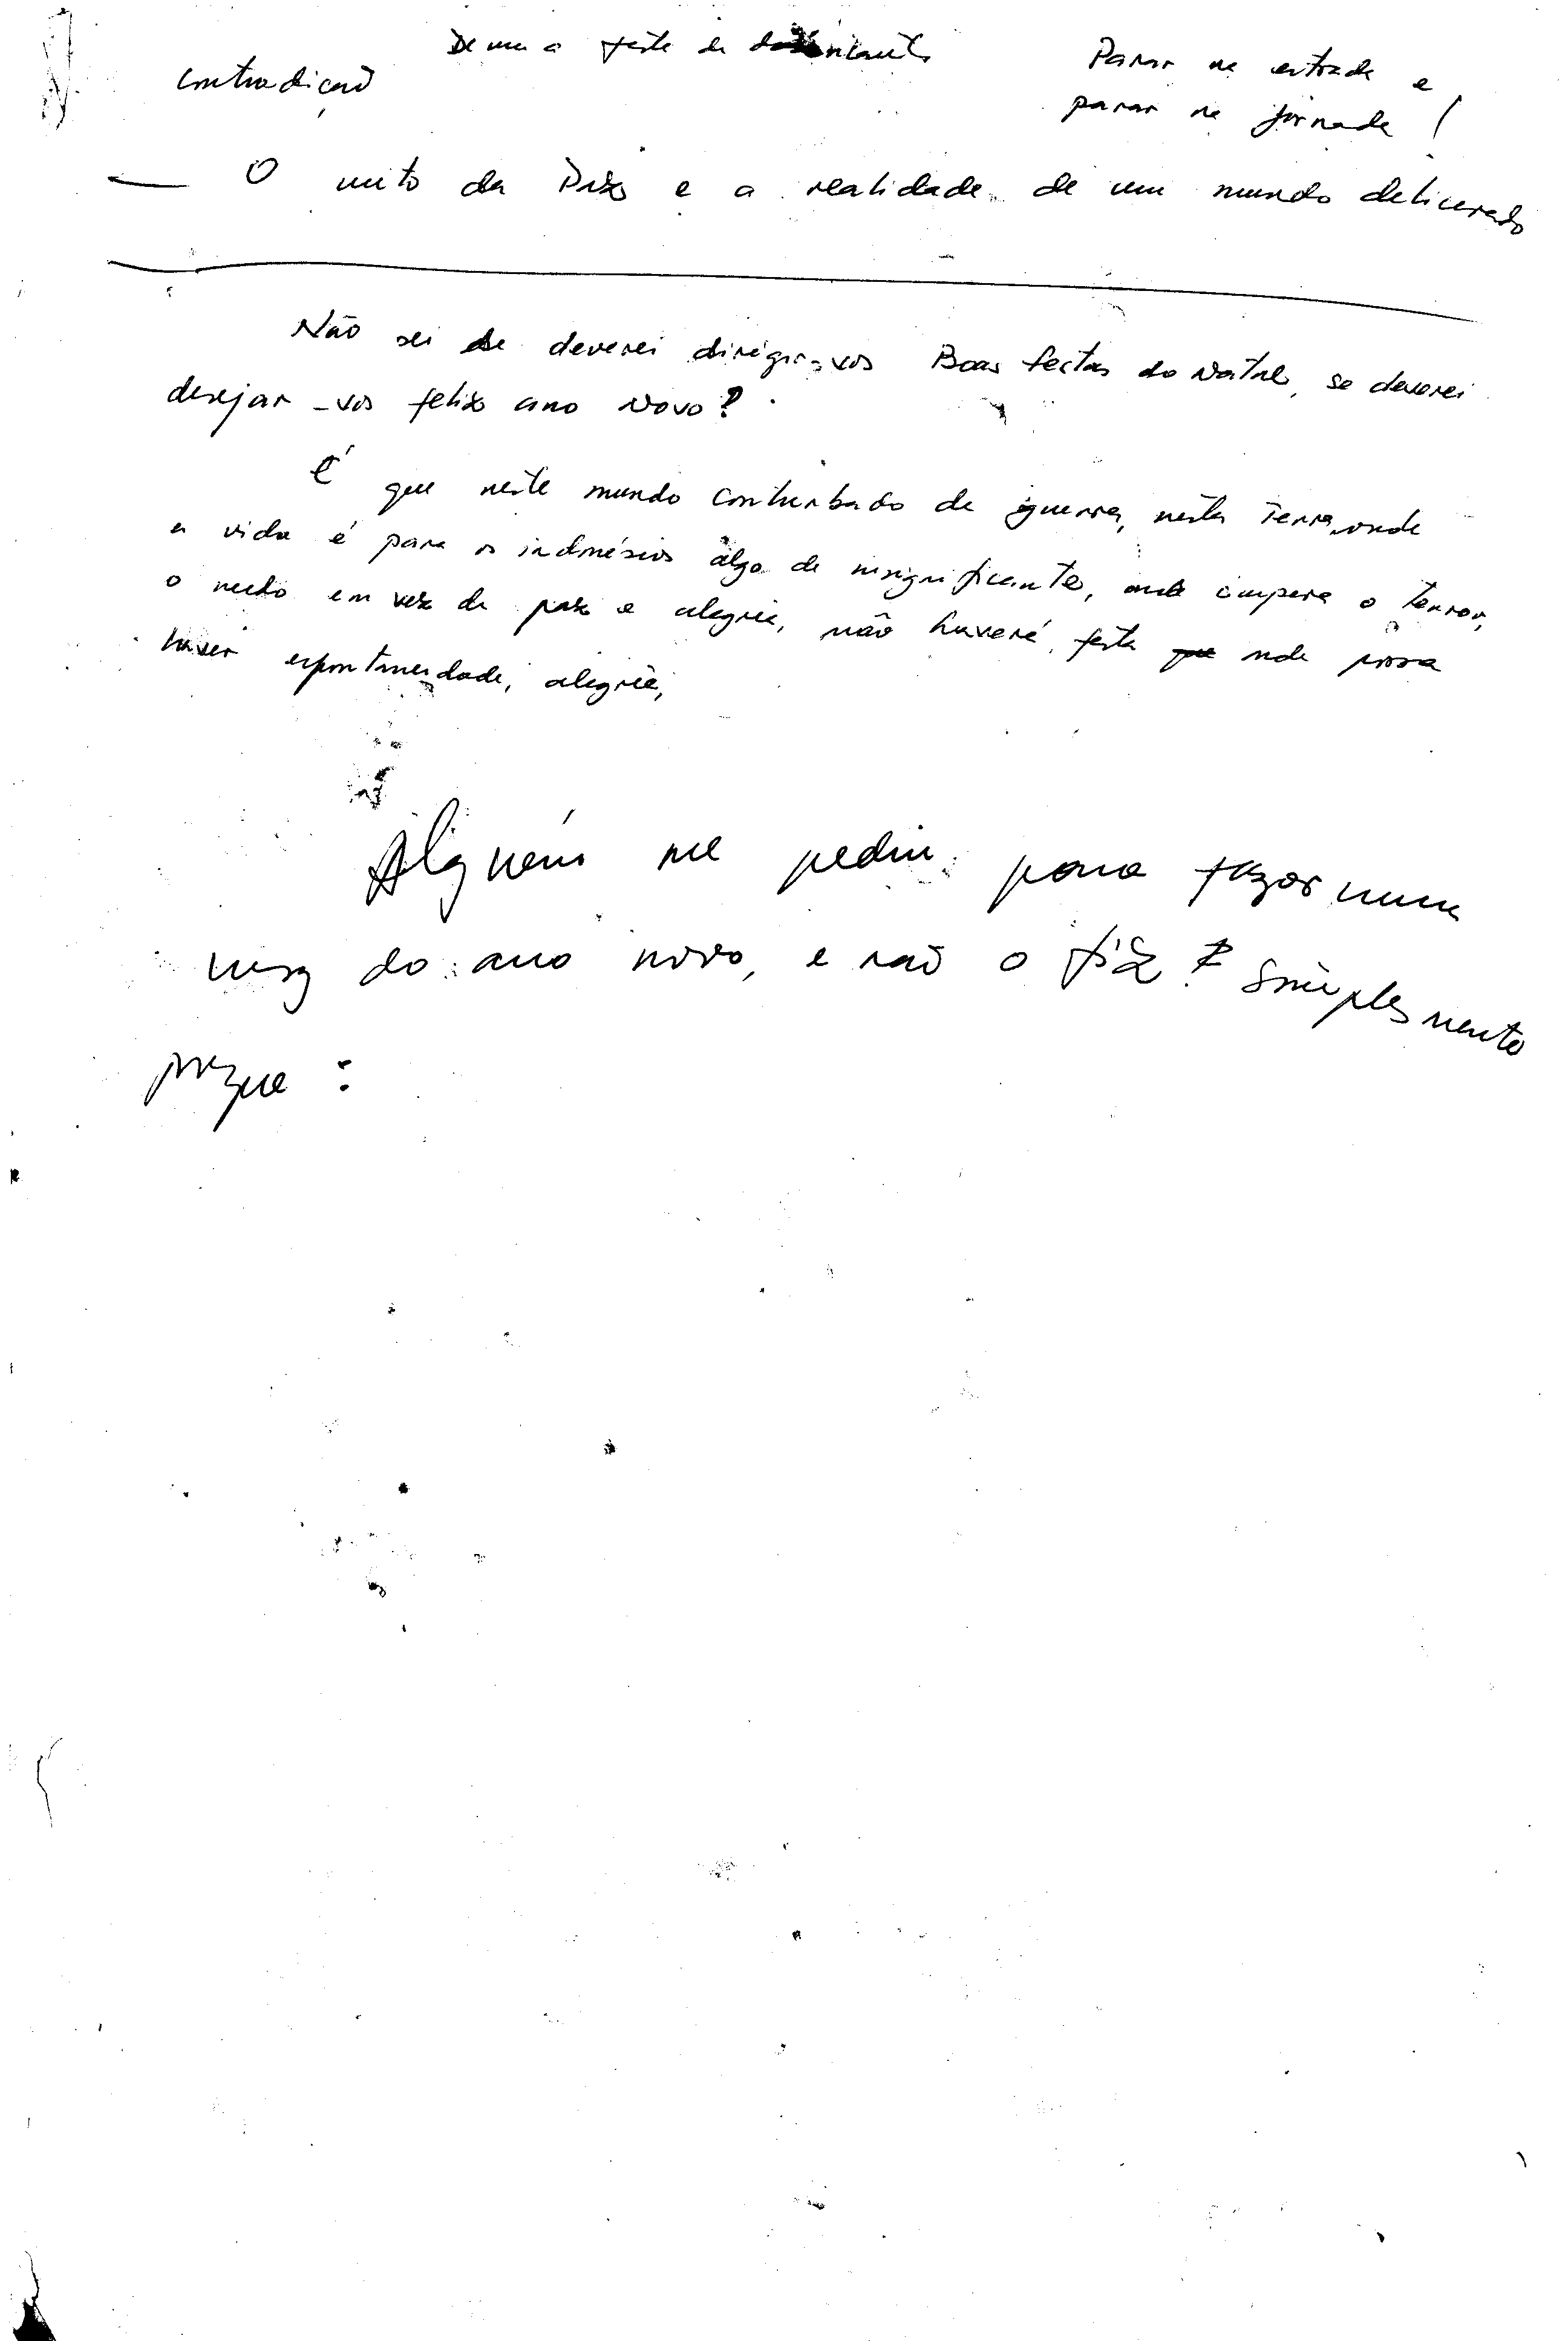 contradição
Parar na estrada e
parar na jornada!
— O mito da Paz e a realidade de um mundo delicerado
Não sei se deverei dirigir-vos Boas festas do Natal, se deverei
desejar-vos feliz ano Novo?
É que neste mundo conturbado de guerra, nesta Terra, onde
a vida é para os indonésios algo de insignificante, onde impera o terror,
o medo em vez de paz e alegria, não haverá festa onde possa
haver espontaneidade, alegria,
Alguém me pediu para fazer uma
msg do ano novo, e não o fiz? Simplesmente
porque: